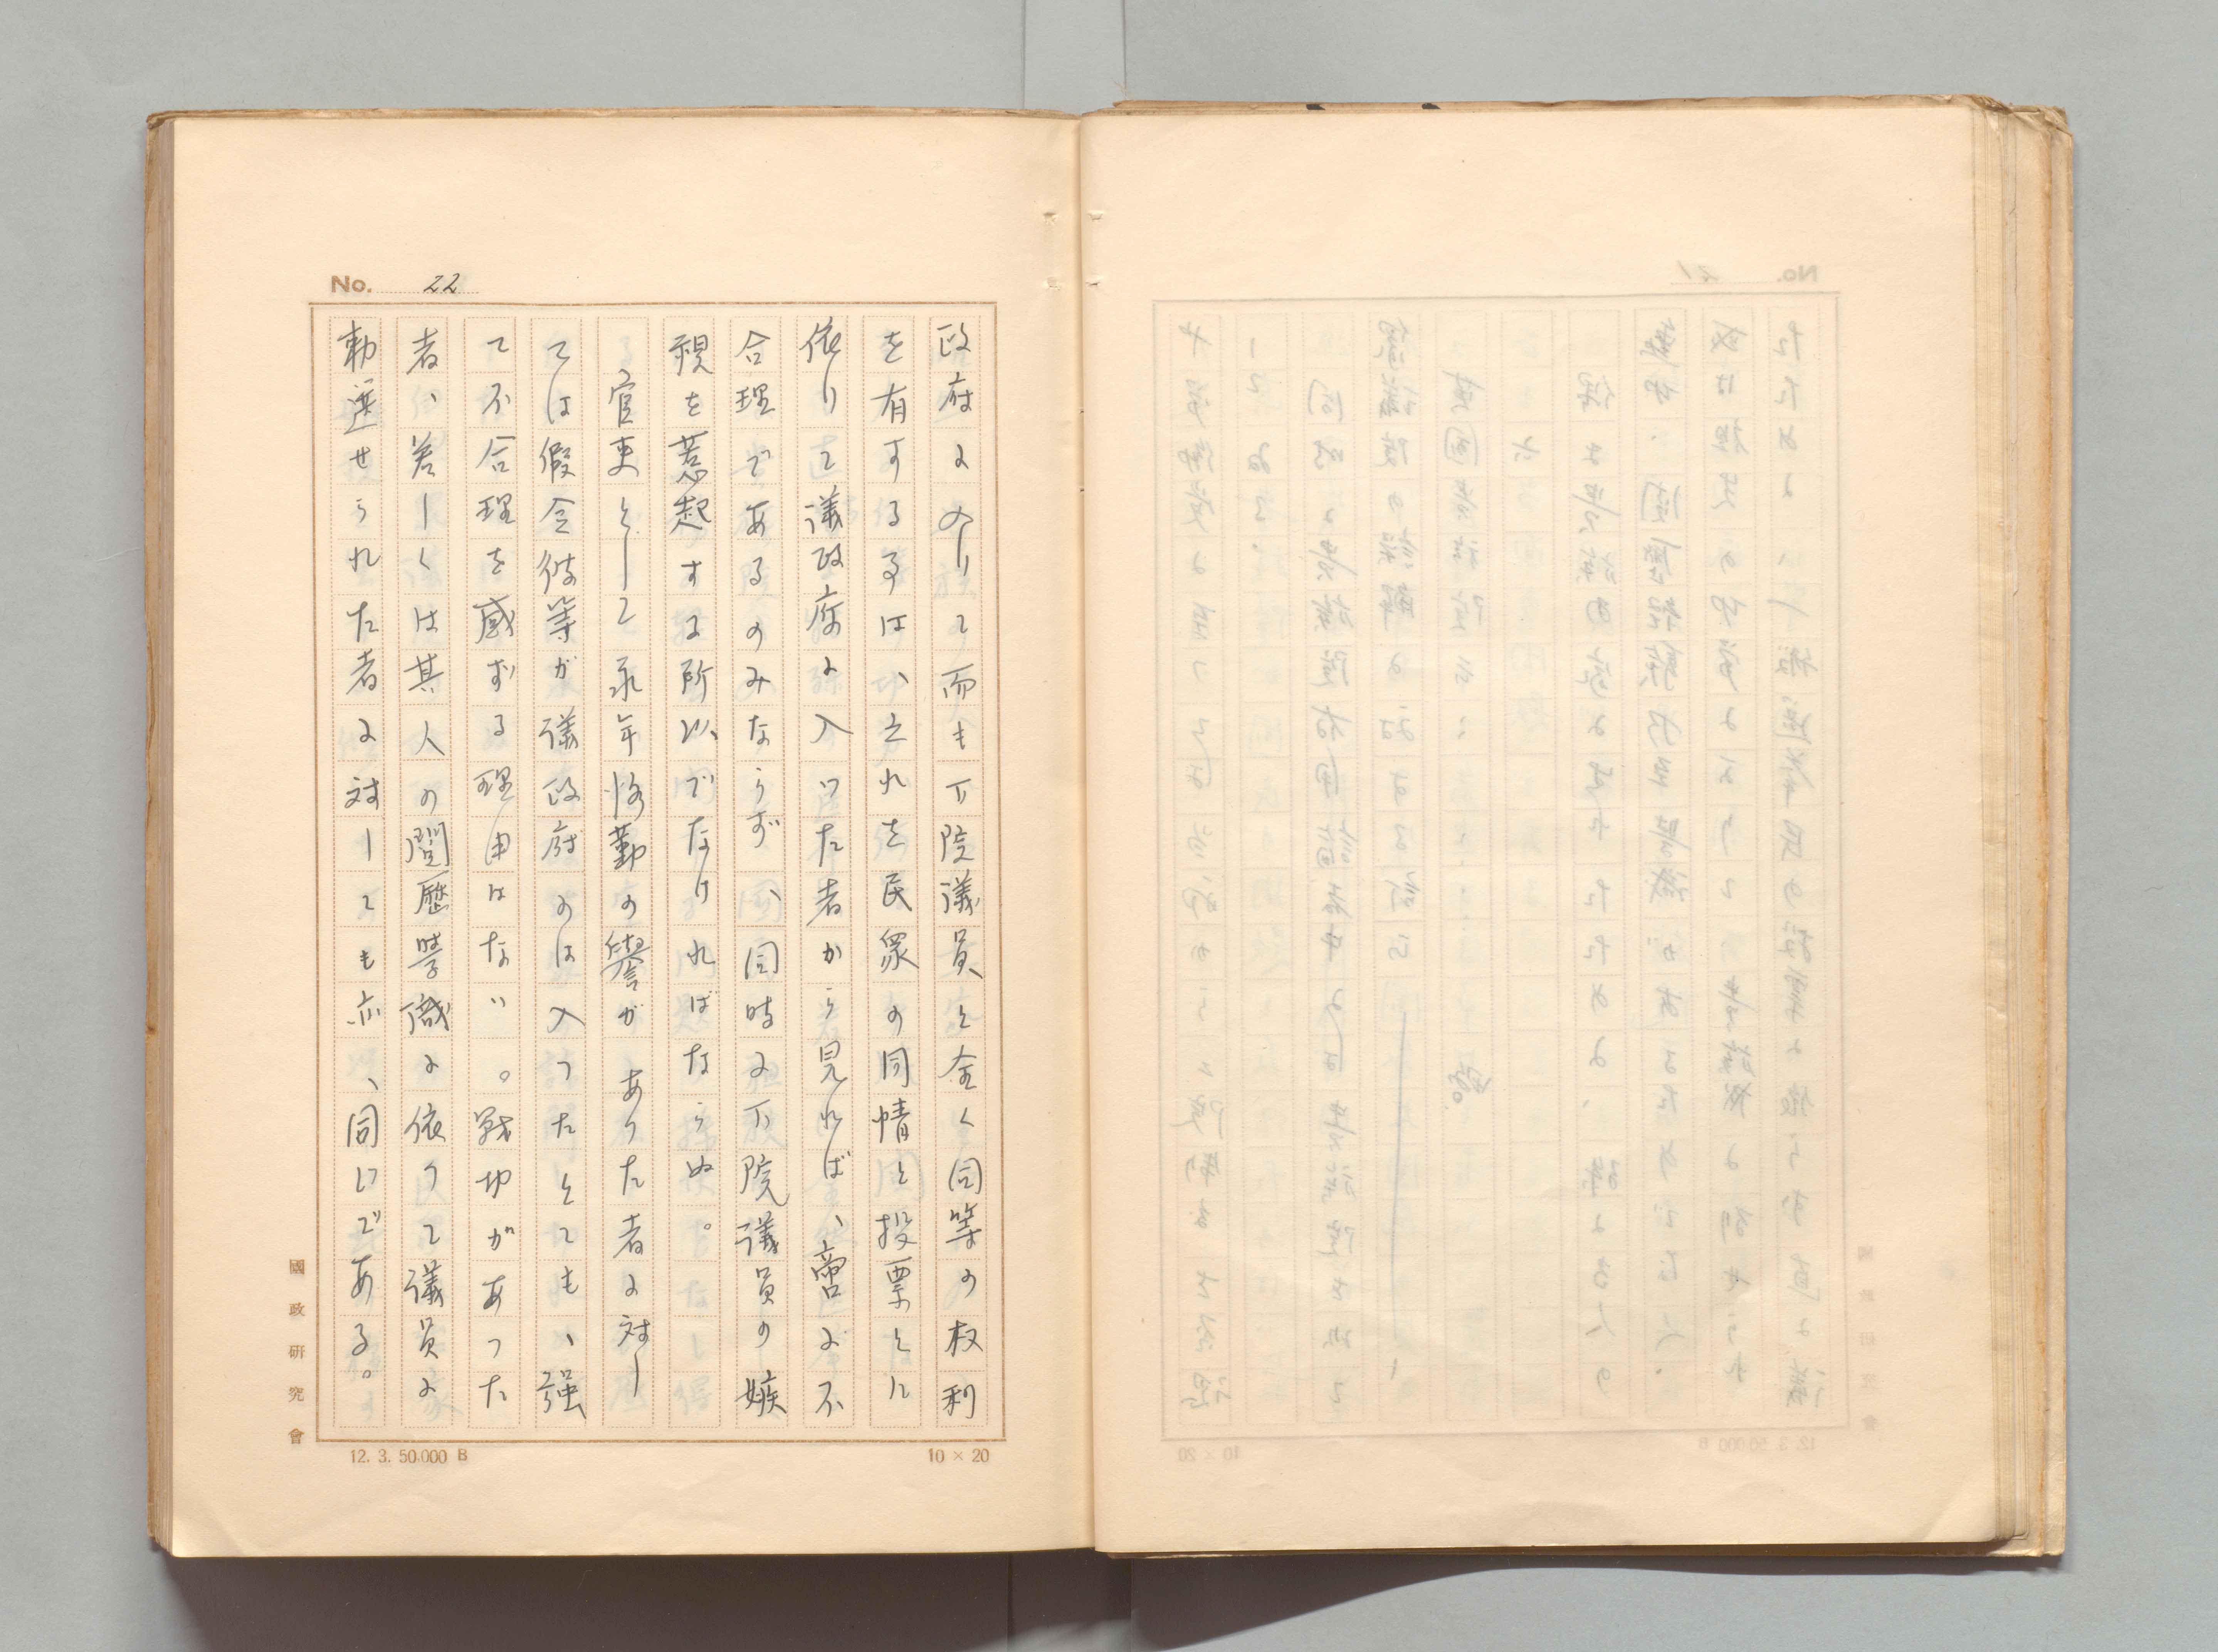 No. 22
政府に入りて而も下院議員と全く同等の权利
を有する事は、之れを民衆の同情と投票とに
依りて議政府に入つた者から見れば、啻に不
合理であるのみならず、同時に下院議員の嫉
視を惹起する所以でなければならぬ。
官吏として永年恪勤の誉があった者に対し
ては假令彼等が議政府のは入つたとても、强
て不合理を感ずる理由はない。戦功があつた
者、若しくは其人の閲歴学識に依りて議員に
勅選せられた者に対しても亦、同じである。
國政研究會
12. 3. 50,000 B
10 × 20